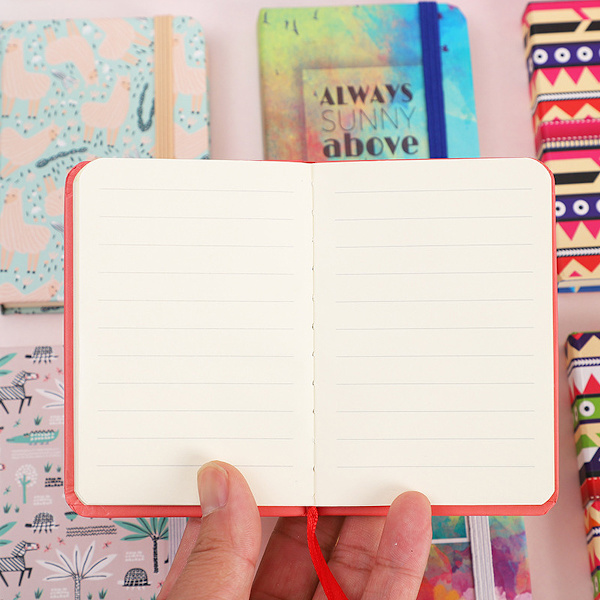 ALWAYS
SUNNY
above